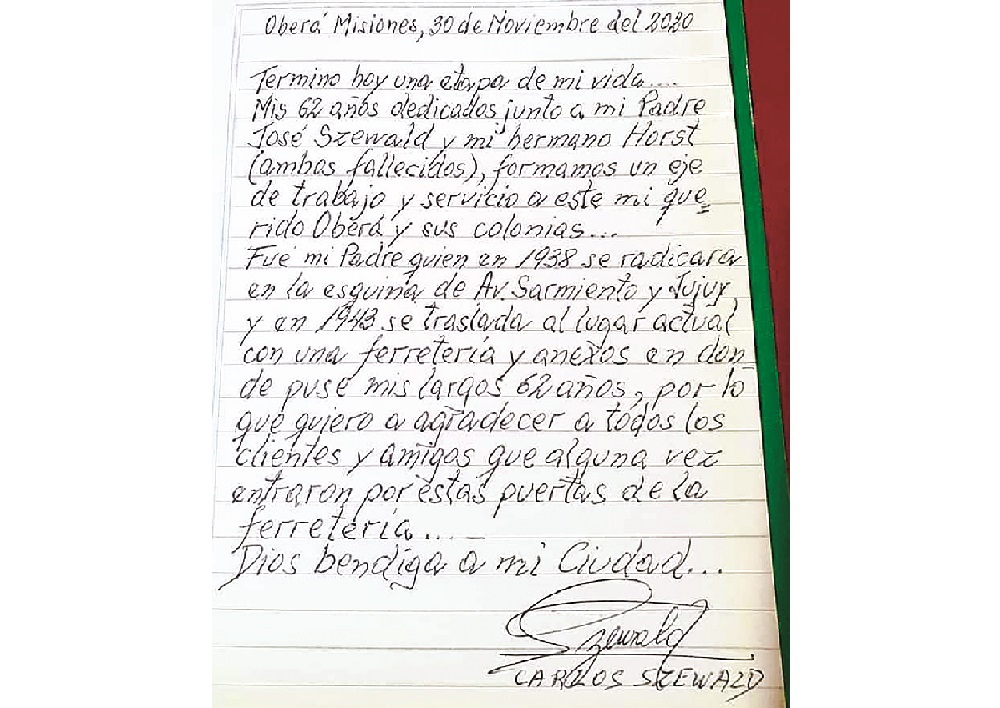 Oberá Misiones, 30 de Noviembre del 2020
Termino hoy una etapa de mi vida....
Mis 62 años dedicados junto a mi Padre
José Szewald y mi hermano Horst
(ambos fallecidos), formamos un eje
de trabajo y servicio a este mi que=
rido Oberá y sus colonias...
Fué mi Padre quien en 1938 se radicara
en la esquina de Av. Sarmiento y Jujuy,
y en 1943 se traslada al lugar actual
con una ferretería y anexos en don
de puse mis largos 62 años, por lo
que quiero a agradecer a todos los
clientes y amigos que alguna vez
entraron por estas puertas de la
ferretería....
Dios bendiga a mi Ciudad...
Szewald
CARLOS SZEWALD